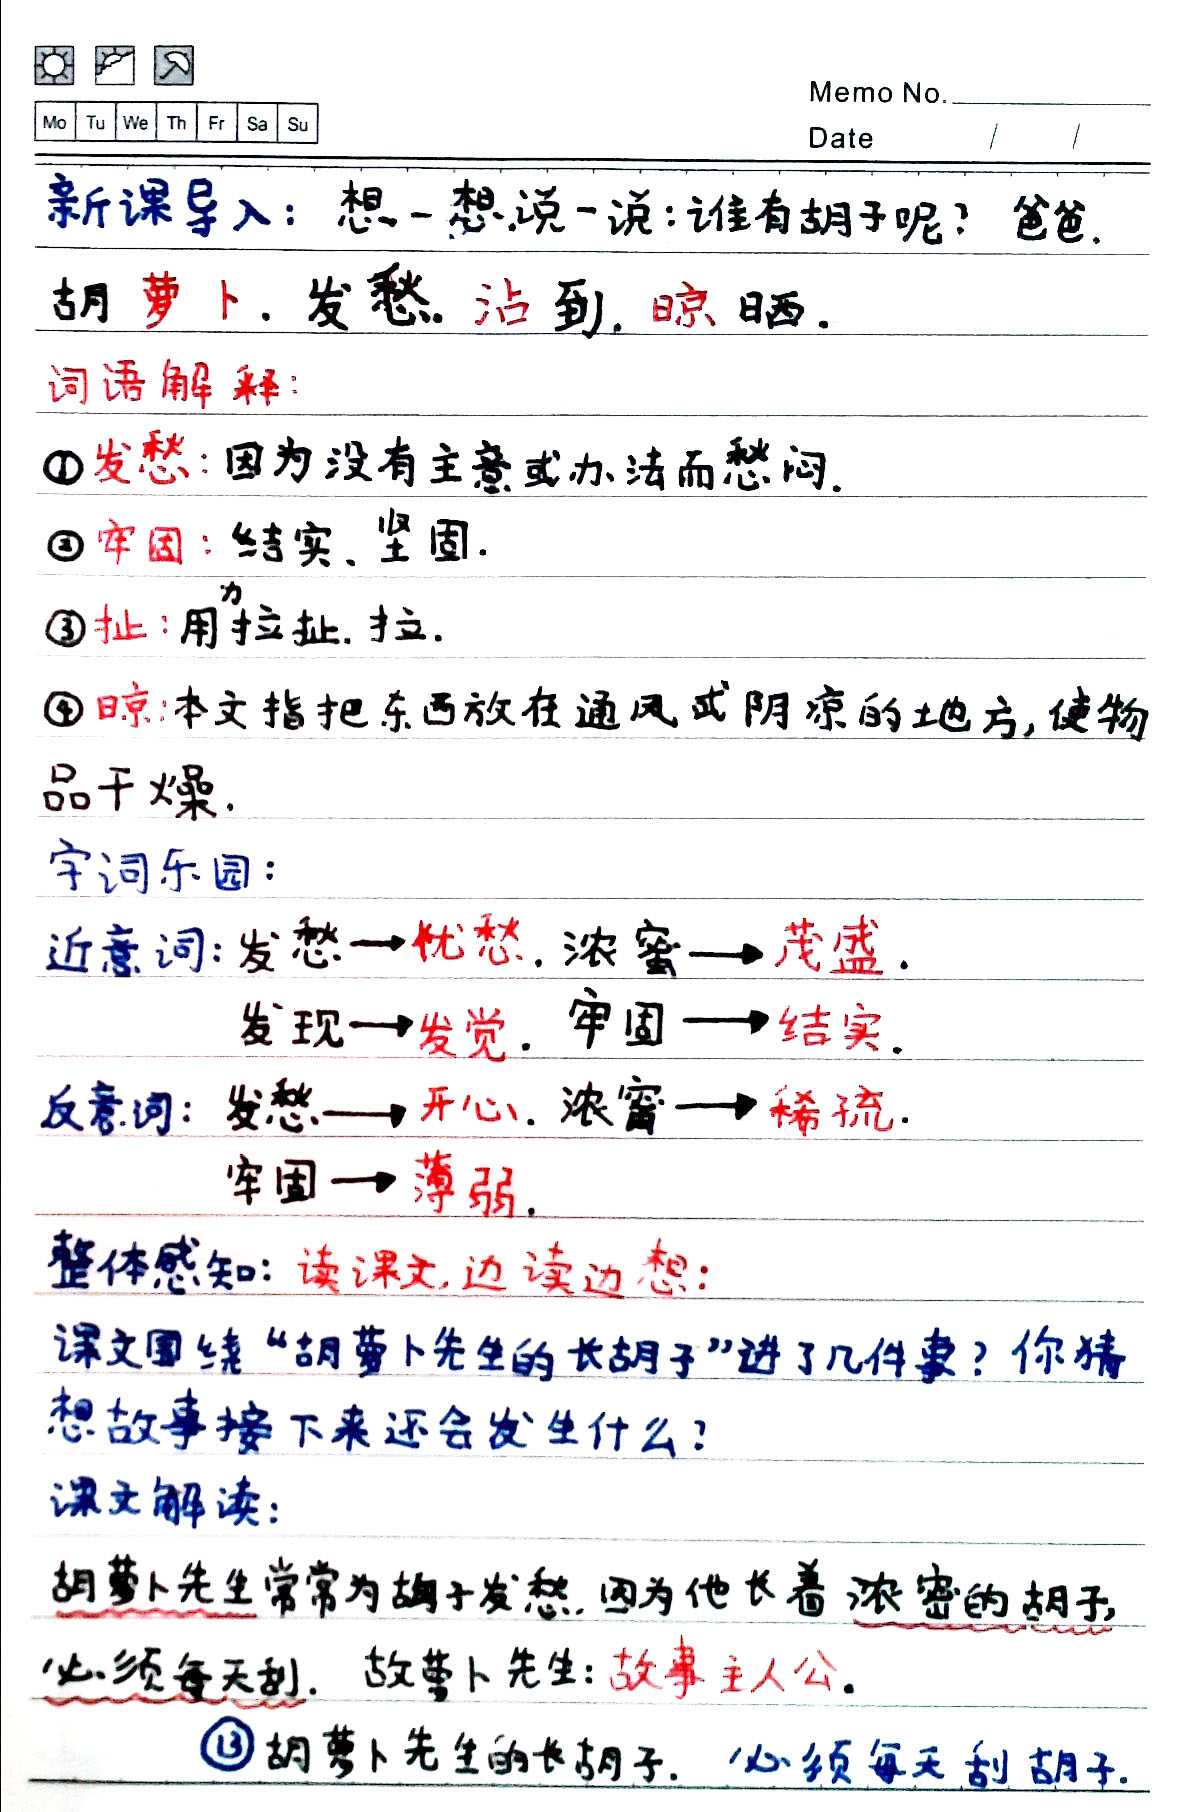 Memo No.
Mo Tu We Th Fr Sa Su
Date / /
新课导入：想一想.说一说：谁有胡子呢？爸爸.
胡萝卜.发愁.沾到.晾晒.
词语解释：
①发愁：因为没有主意或办法而愁闷.
②牢固：结实、坚固.
③扯：用力拉扯.拉.
④晾：本文指把东西放在通风或阴凉的地方,使物
品干燥.
字词乐园：
近意词：发愁→忧愁.浓蜜→茂盛.
发现→发觉.牢固→结实.
反意词：发愁→开心.浓密→稀疏.
牢固→薄弱.
整体感知：读课文,边读边想：
课文围绕“胡萝卜先生的长胡子”讲了几件事？你猜
想故事接下来还会发生什么？
课文解读：
胡萝卜先生常常为胡子发愁.因为他长着浓密的胡子,
必须每天刮. 故萝卜先生：故事主人公.
⑬胡萝卜先生的长胡子. 必须每天刮胡子.